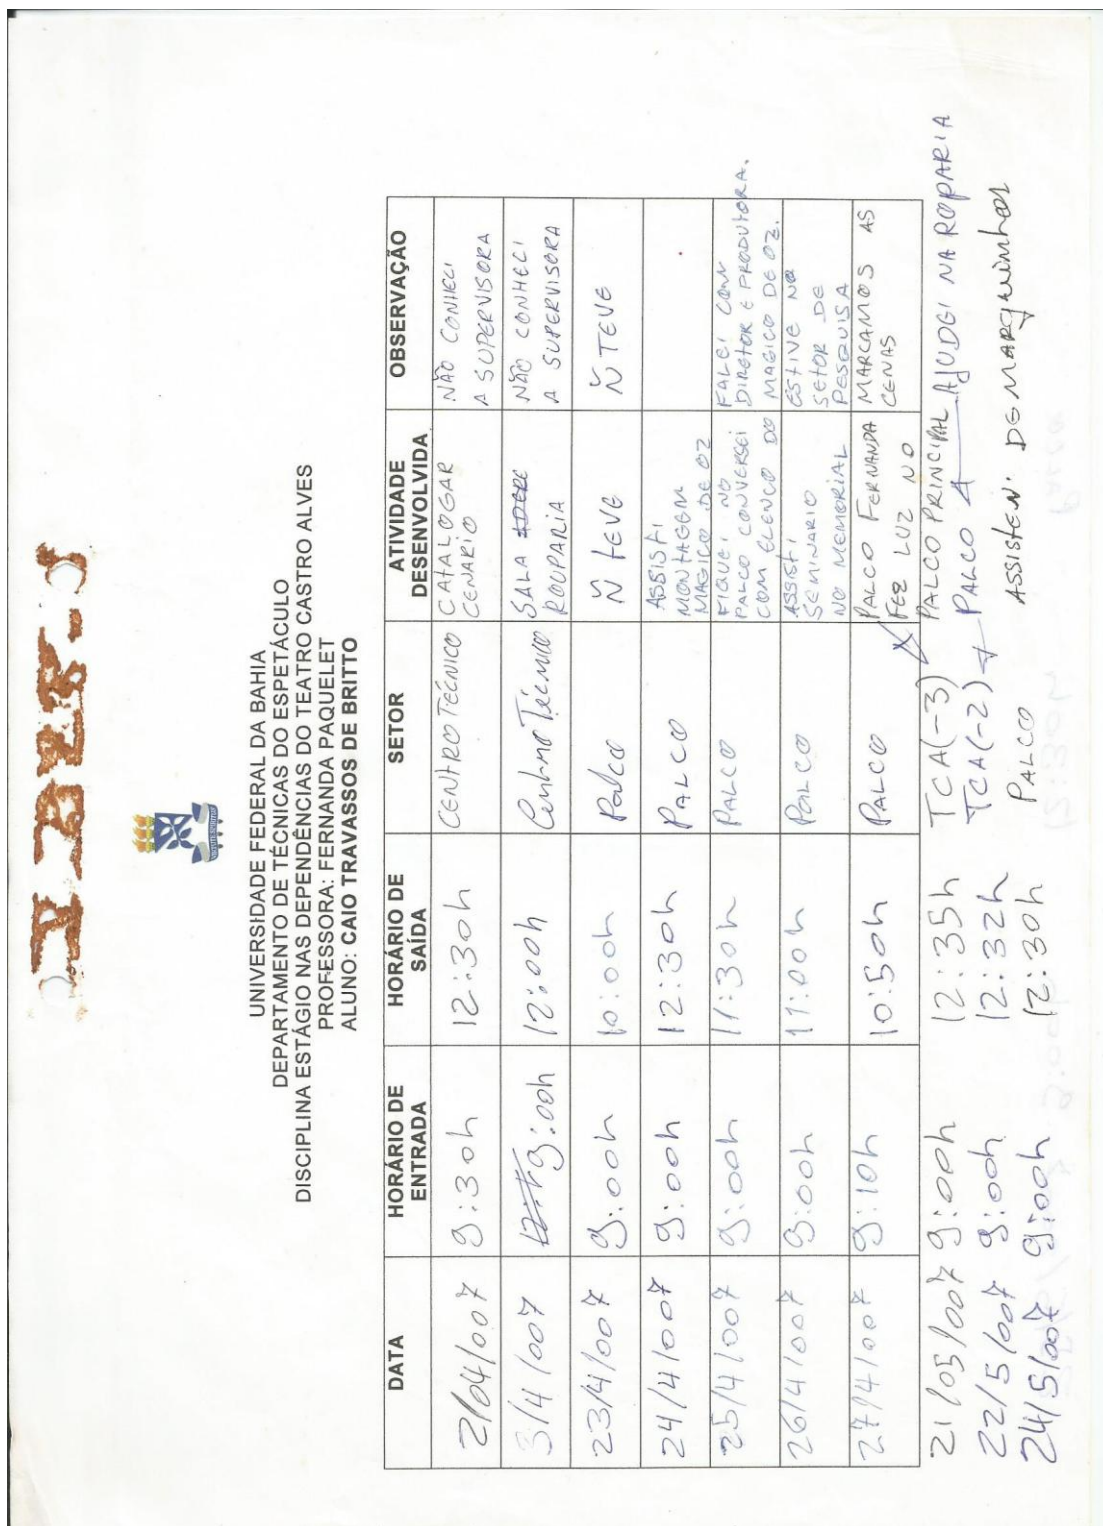 UNIVERSIDADE FEDERAL DA BAHIA
DEPARTAMENTO DE TÉCNICAS DO ESPETÁCULO
DISCIPLINA ESTÁGIO NAS DEPENDÊNCIAS DO TEATRO CASTRO ALVES
PROFESSORA: FERNANDA PAQUELET
ALUNO: CAIO TRAVASSOS DE BRITTO
DATA HORÁRIO DE ENTRADA HORÁRIO DE SAÍDA SETOR ATIVIDADE DESENVOLVIDA OBSERVAÇÃO
2/04/007 9:30h 12:30h CENTRO TÉCNICO CATALOGAR CENARIO NÃO CONHECI A SUPERVISORA
3/4/007 9:00h 12:00h Centro Técnico SALA ROUPARIA NÃO CONHECI A SUPERVISORA
23/4/007 9:00h 10:00h Palco Ñ TEVE Ñ TEVE
24/4/007 9:00h 12:30h PALCO ASSISTI MONTAGEM MAGICO DE OZ
25/4/007 9:00h 11:30h PALCO FIQUEI NO PALCO CONVERSEI COM ELENCO DO FALEI COM DIRETOR E PRODUTORA. MAGICO DE OZ.
26/4/007 9:00h 11:00h PALCO ASSISTI SEMINARIO NO MEMORIAL ESTIVE NO SETOR DE PESQUISA
27/4/007 9:10h 10:50h PALCO PALCO FERNANDA FEZ LUZ NO MARCAMOS AS CENAS
21/05/007 9:00h 12:35h TCA(-3) PALCO PRINCIPAL AJUDEI NA ROPARIA
22/5/007 9:00h 12:32h TCA(-2) PALCO
24/5/007 9:00h 12:30h PALCO ASSISTEN. DE MARQUINHOS